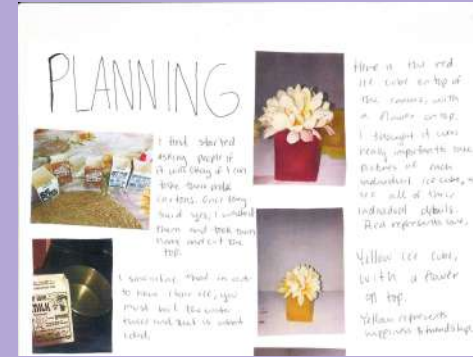 PLANNING
I first started
asking people if
it will okay if I can
take their milk
cartons. Once they
said yes, I washed
them and took them
home and cut the
top.
I
that in order
to have clear ice, you
must boil the water
twice and that is what
I did.
Here is the red
ice cube on top of
the canvas, with
a flower on top.
I thought it was
really important to take
pictures of each
individual ice cube,
see all of their
individual details.
Red represents love.
Yellow ice cube,
with a flower
on top.
Yellow represents
happiness & friendship.